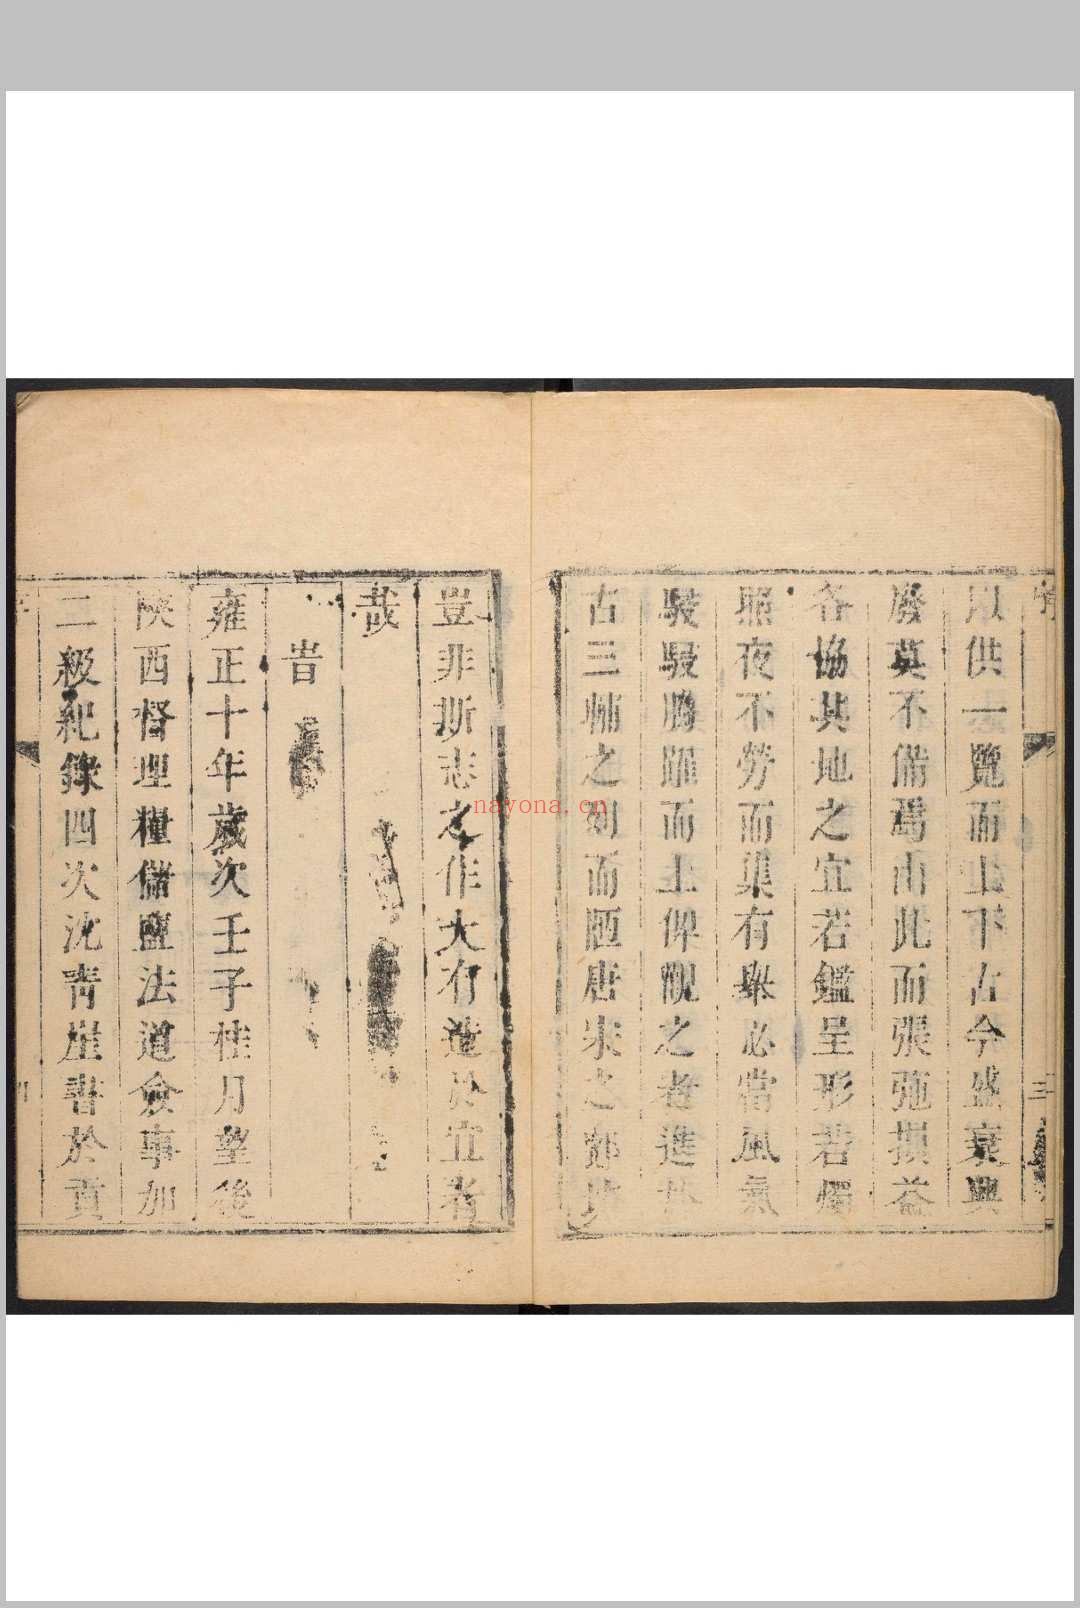 序
三
以供一覽而上下古今盛衰興
廢莫不備焉由此而張弛損益
各協其地之宜若鑑呈形若燭
照夜不勞而集有舉必當風氣
駸駸騰躍而上俾觀之者進於
古三輔之列而陋唐宋之
豈非斯志之作大有造於宜者
哉
旹
雍正十年歲次壬子桂月望後
陝西督理糧儲鹽法道僉事加
二級紀錄四次沈青崖書於貢
nayona.cn